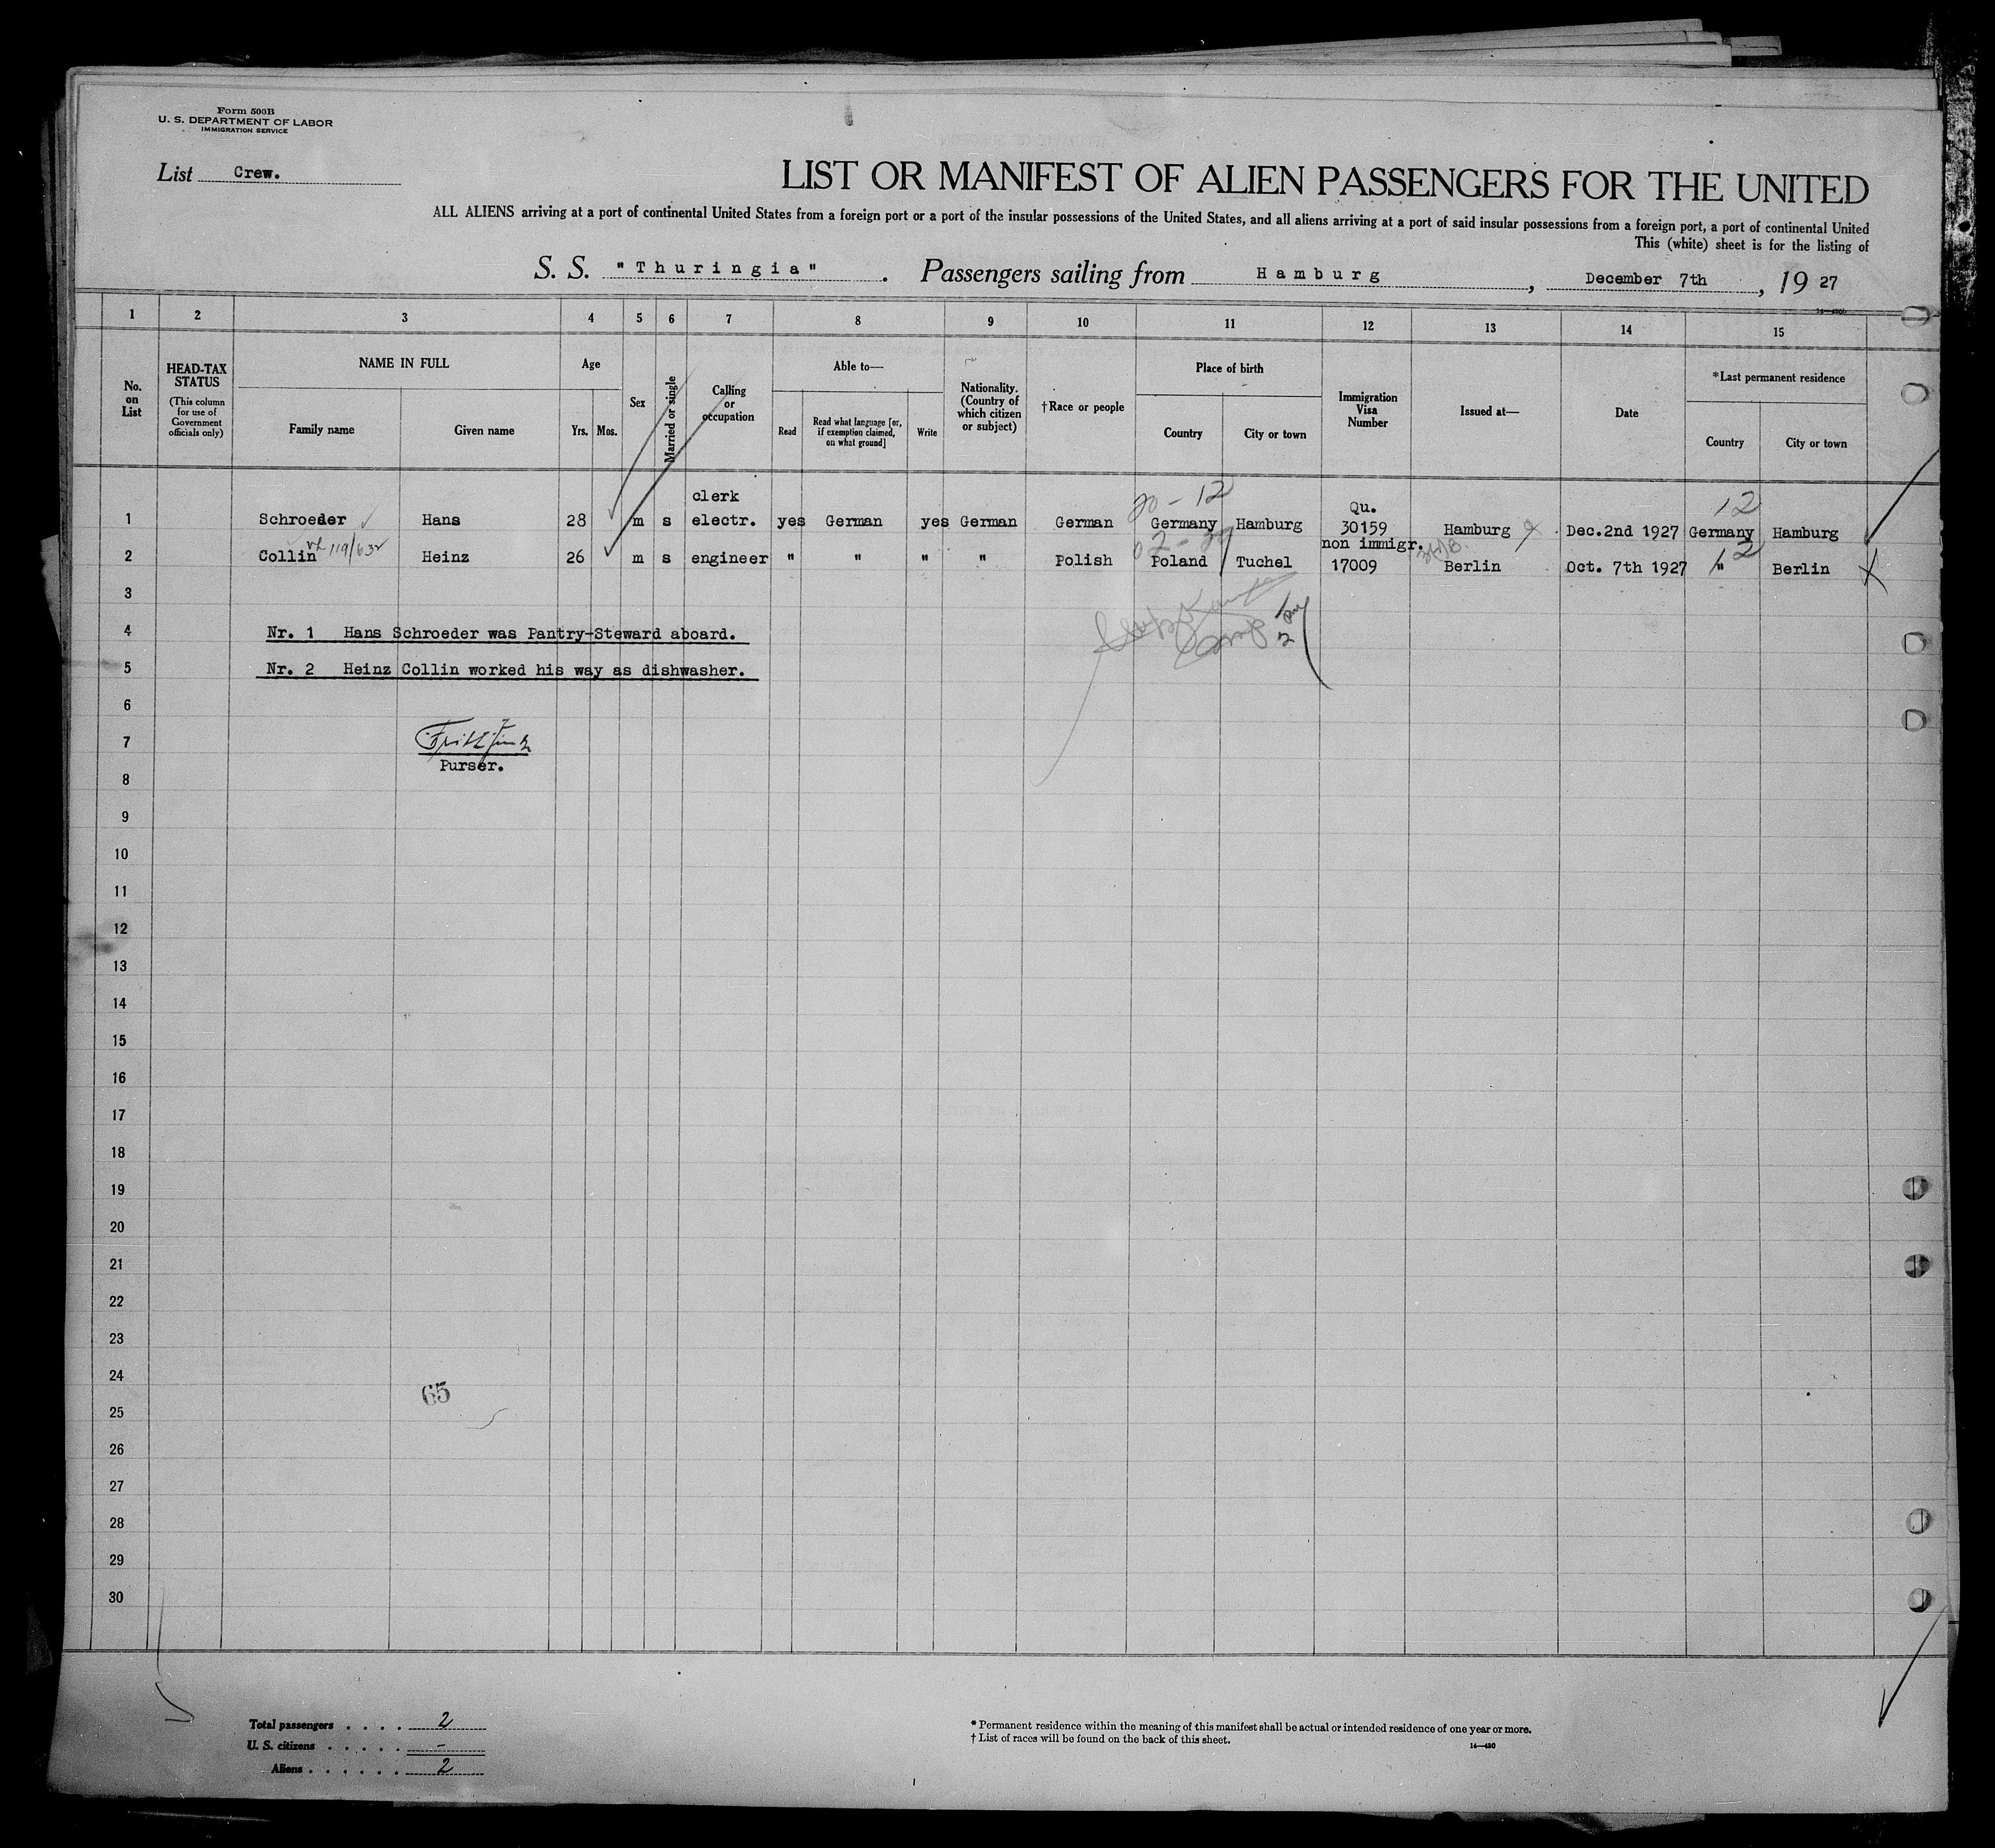 Form 500B
U. S. DEPARTMENT OF LABOR
IMMIGRATION SERVICE
List Crew.
LIST OR MANIFEST OF ALIEN PASSENGERS FOR THE UNITED
ALL ALIENS arriving at a port of continental United States from a foreign port or a port of the insular possessions of the United States, and all aliens arriving at a port of said insular possessions from a foreign port, a port of continental United
This (white) sheet is for the listing of
S. S. "Thuringia". Passengers sailing from Hamburg, December 7th, 19 27
1 2 3 4 5 6 7 8 9 10 11 12 13 14 15
No. on List
HEAD-TAX STATUS
(This column for use of Government officials only)
NAME IN FULL
Family name Given name
Age
Yrs. Mos.
Sex
Married or single
Calling or occupation
Able to—
Read
Read what language [or, if exemption claimed, on what ground]
Write
Nationality. (Country of which citizen or subject)
†Race or people
Place of birth
Country City or town
Immigration Visa Number
Issued at—
Date
*Last permanent residence
Country City or town
clerk 20 - 12 Qu. 12
1 Schroeder Hans 28 m s electr. yes German yes German German Germany Hamburg 30159 Hamburg Dec.2nd 1927 Germany Hamburg
119/632 non immigr. 12
2 Collin Heinz 26 m s engineer " " " " Polish Poland Tuchel 17009 Berlin Oct. 7th 1927 " Berlin
3
4 Nr. 1 Hans Schroeder was Pantry-Steward aboard.
5 Nr. 2 Heinz Collin worked his way as dishwasher.
6
7
Purser.
8
9
10
11
12
13
14
15
16
17
18
19
20
21
22
23
24
65
25
26
27
28
29
30
Total passengers . . . . 2
U. S. citizens . . . . . –
Aliens . . . . . . 2
* Permanent residence within the meaning of this manifest shall be actual or intended residence of one year or more.
† List of races will be found on the back of this sheet.
14—430